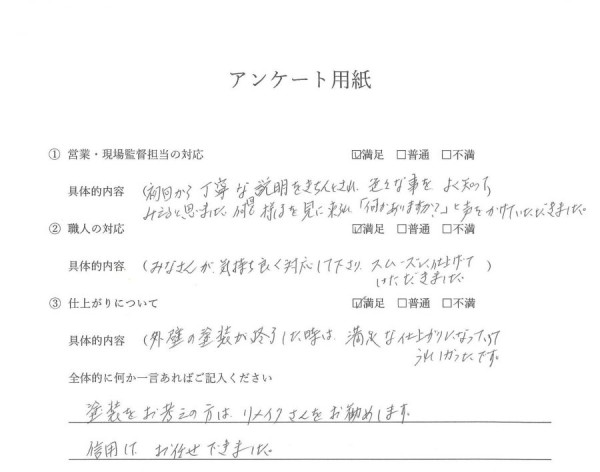 アンケート用紙
① 営業・現場監督担当の対応 ☑満足 ☐普通 ☐不満
具体的内容 (初回から丁寧な説明をきちんとされ、色々な事をよく知って
みえると思いました。何回も様子を見に来られ「何かありますか？」と声をかけていただきました。
② 職人の対応 ☑満足 ☐普通 ☐不満
具体的内容 (みなさんが気持ち良く対応して下さり、スムーズに仕上げて
いただきました。)
③ 仕上がりについて ☑満足 ☐普通 ☐不満
具体的内容 (外壁の塗装が終了した時は、満足な仕上がりになっていて
うれしかったです。
全体的に何か一言あればご記入ください
塗装をお考えの方は、リメイクさんをお勧めします。
信用して、お任せできました。